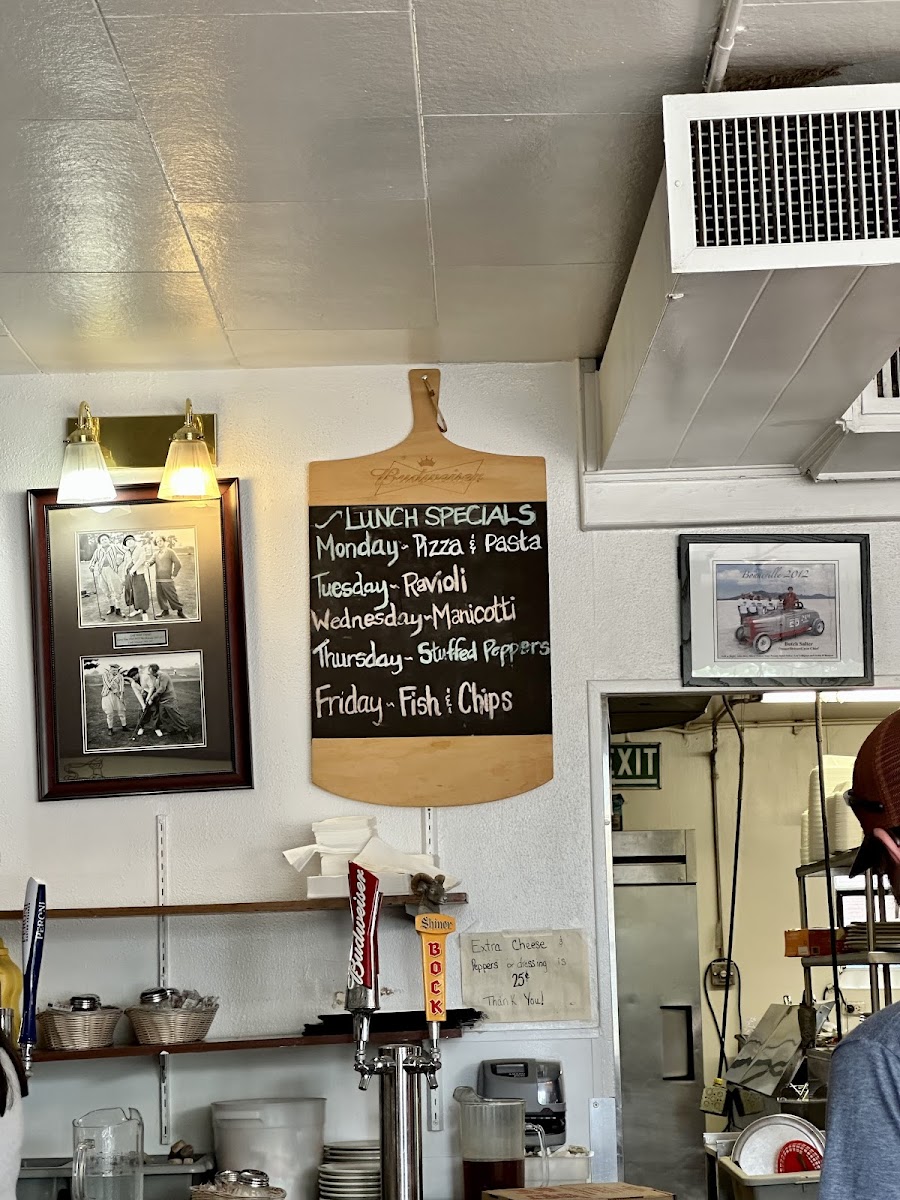 Budweiser
LUNCH SPECIALS
Monday~ Pizza & Pasta
Tuesday~ Ravioli
Wednesday~Manicotti
Thursday~ Stuffed Peppers
Friday~ Fish & Chips
Bonneville 2012
EXIT
PERONI
Budweiser
Shiner
BOCK
Extra Cheese &
Peppers or dressing is
25¢
Thank You!